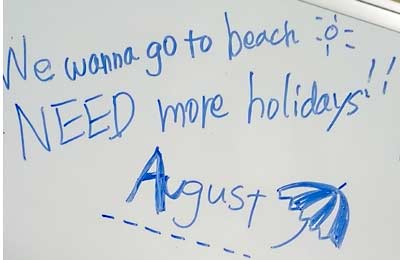 We wanna go to beach
NEED more holidays!!
August